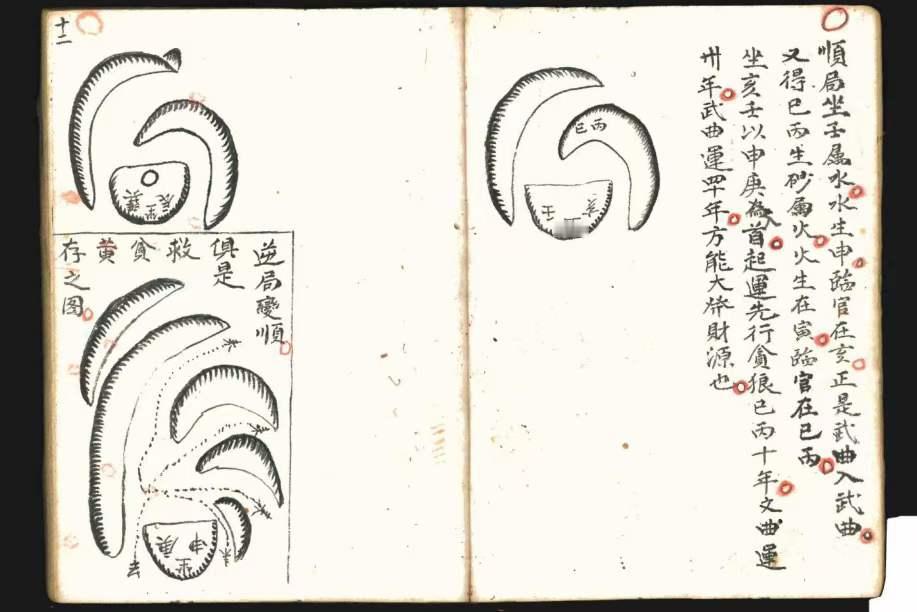 順局坐壬屬水水生申臨官在亥正是武曲入武曲
又得巳丙生砂屬火火生在寅臨官在巳丙
坐亥壬以申庚為首起運先行貪狼巳丙十年文曲運
卅年武曲運四十年方能大發財源也
巳丙
亥
壬
十二
坐
逆局變順
俱是
救
貧
黄
存之圖
未
坐
申
庚